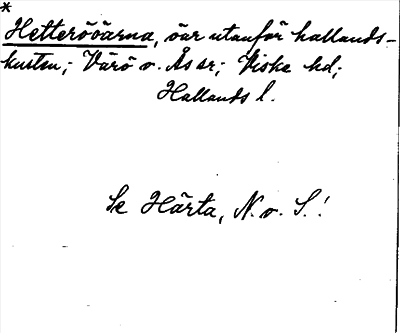 *
Hetteröarna, öar utanför hallands-
kusten; Värö o. Ås sr; Viske hd;
Hallands l.
Se Härta, N. o. S.!